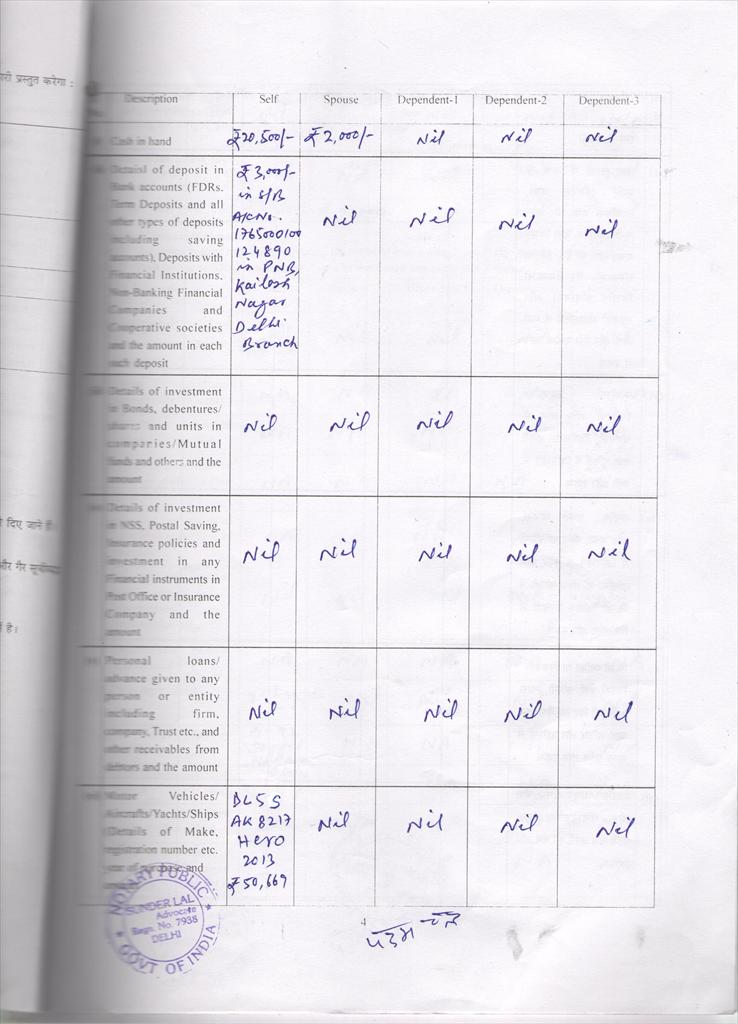 री प्रस्तुत करेगा :
Description Self Spouse Dependent-1 Dependent-2 Dependent-3
Cash in hand ₹20,500/- ₹2,000/- Nil Nil Nil
Details of deposit in
Bank accounts (FDRs,
Term Deposits and all
other types of deposits
including saving
accounts), Deposits with
Financial Institutions,
Non-Banking Financial
Companies and
Cooperative societies
and the amount in each
such deposit
₹3,000/-
in S/B
A/c No.
1765000100
124890
in PNB,
Kailash
Nagar
Delhi
Branch
Nil Nil Nil Nil
Details of investment
in Bonds, debentures/
shares and units in
companies/Mutual
funds and others and the
amount
Nil Nil Nil Nil Nil
Details of investment
in NSS, Postal Saving,
Insurance policies and
investment in any
Financial instruments in
Post Office or Insurance
Company and the
amount
Nil Nil Nil Nil Nil
दिए जाने हैं
और गैर
है।
Personal loans/
advance given to any
person or entity
including firm,
company, Trust etc., and
other receivables from
debtors and the amount
Nil Nil Nil Nil Nil
Motor Vehicles/
Aircrafts/Yachts/Ships
(Details of Make,
registration number etc.
year of purchase and
DL5S
AK8217
Hero
2013
₹50,669
Nil Nil Nil Nil
NOTARY PUBLIC
SUNDER LAL
Advocate
Regn. No. 7938
DELHI
GOVT OF INDIA
4